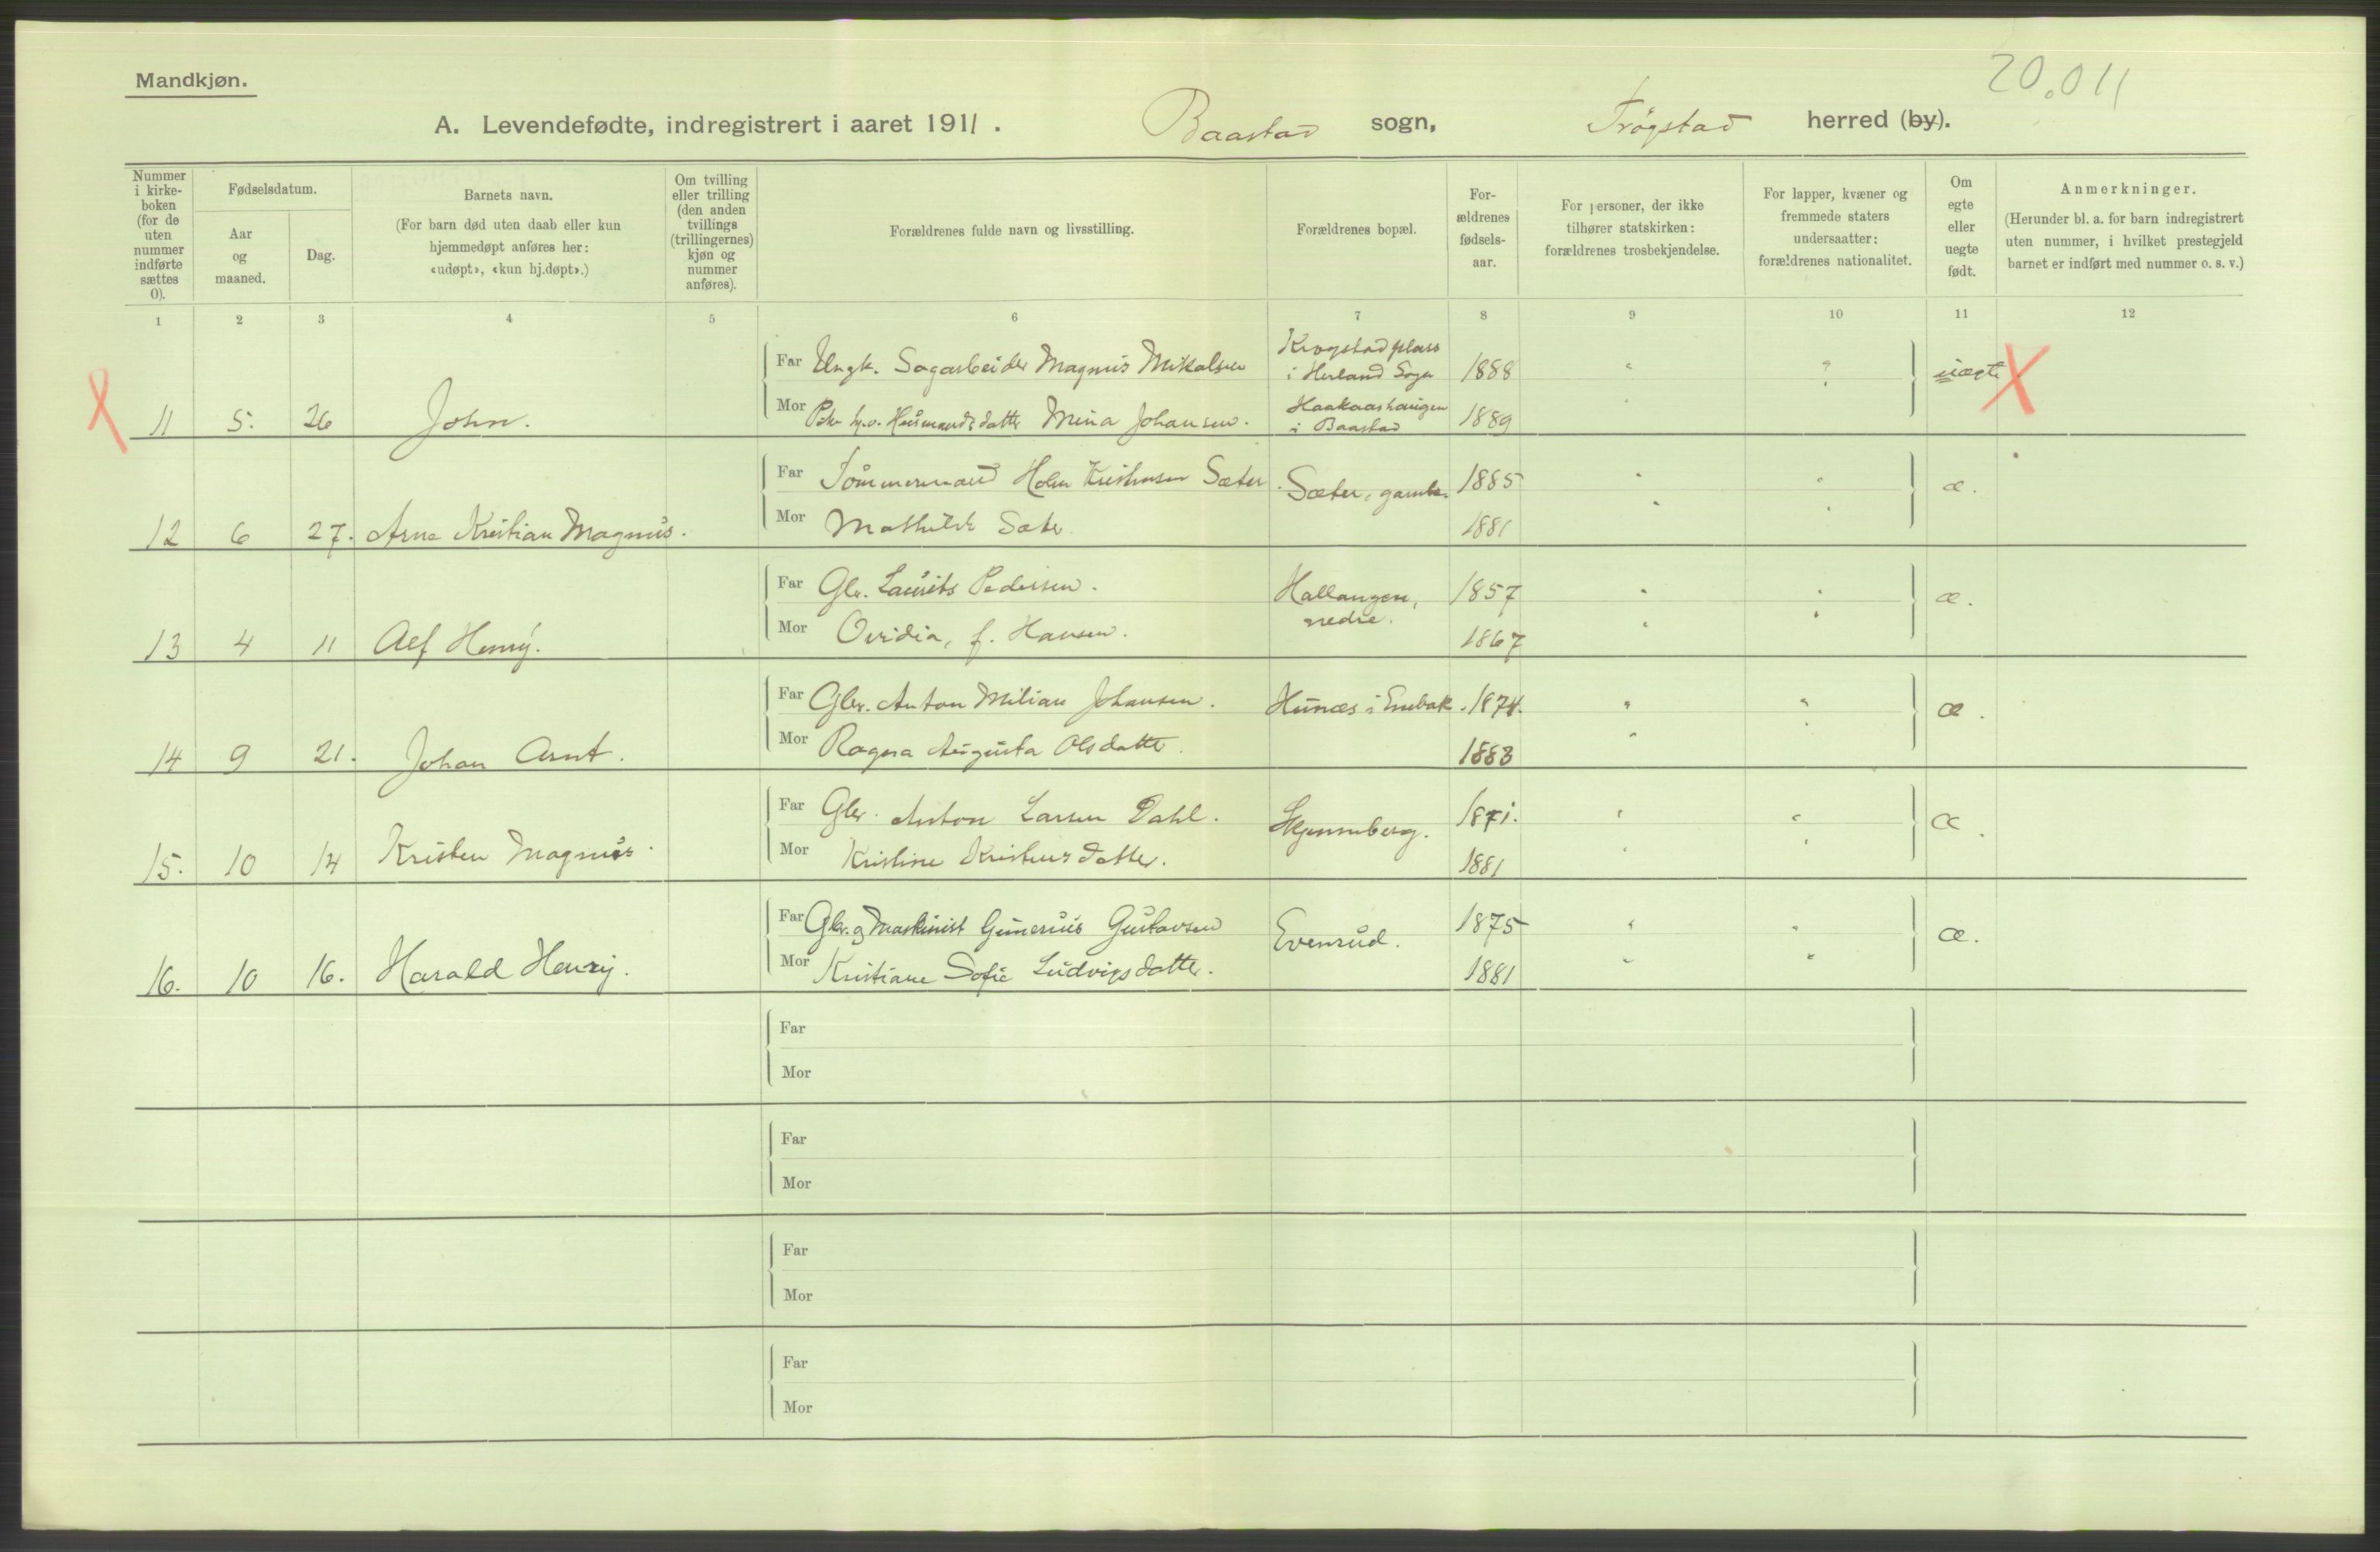 20.011
Mandkjøn.
A. Levendefødte, indregistrert i aaret 1911. Baastad sogn, Trøgstad herred (by).
Nummer i kirke-boken (for de uten nummer indførte sættes 0).
Fødselsdatum.
Aar og maaned.
Dag.
Barnets navn.
(For barn død uten daab eller kun hjemmedøpt anføres her: «udøpt», «kun hj.døpt».)
Om tvilling eller trilling (den anden tvillings (trillingernes) kjøn og nummer anføres).
Forældrenes fulde navn og livsstilling.
Forældrenes bopæl.
For-ældrenes fødsels-aar.
For personer, der ikke tilhører statskirken: forældrenes trosbekjendelse.
For lapper, kvæner og fremmede staters undersaatter: forældrenes nationalitet.
Om egte eller uegte født.
Anmerkninger.
(Herunder bl. a. for barn indregistrert uten nummer, i hvilket prestegjeld barnet er indført med nummer o. s. v.)
1 2 3 4 5 6 7 8 9 10 11 12
Far Ungk. Sagarbeider Magnus Mikalsen Krogstadplass i Herland Sogn 1888 uægte
11 5. 26 John. Mor Pike hv. Husmandsdatter Mina Johansen. Haakaashaugen i Baastad 1889
Far Tømmermand Holm Kristiansen Sæter. Sæter, gamle 1885 æ.
12 6 27. Arne Kristian Magnus. Mor Mathilde Sæter. 1881
Far Gbr. Laurits Pedersen. Hallangen, nedre. 1857 æ.
13 4 11 Alf Henry. Mor Ovidia, f. Hansen. 1867
Far Gbr. Anton Milian Johansen. Hunæs i Enebak. 1874. æ.
14 9 21. Johan Arnt. Mor Ragna Augusta Olsdatter. 1883
Far Gbr. Anton Larsen Dahl. Skjennberg. 1871. æ.
15. 10 14 Kristen Magnus. Mor Kristine Kristensdatter. 1881
Far Gbr. og Maskinist Gunerius Gustavsen Evensrud. 1875 æ.
16. 10 16. Harald Henry. Mor Kristiane Sofie Ludvigsdatter. 1881
Far
Mor
Far
Mor
Far
Mor
Far
Mor